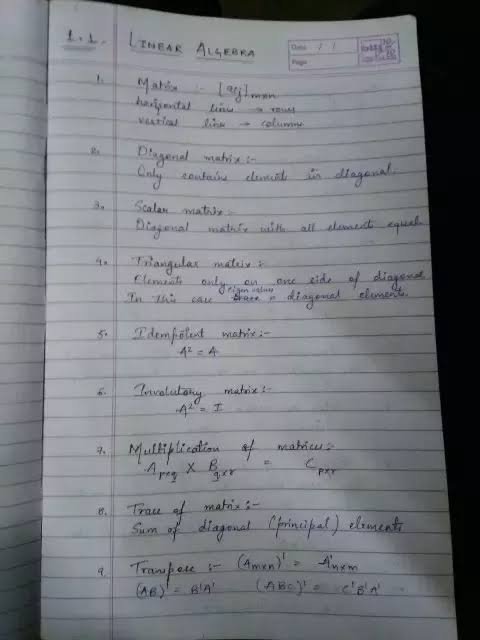 1.1. LINEAR ALGEBRA
Date / /
Page
1. Matrix :- [aij]mxn
horizontal line → rows
vertical line → columns
2. Diagonal matrix :-
Only contains element in diagonal.
3. Scalar matrix :-
Diagonal matrix with all element equal
4. Triangular matrix :-
Elements only on one side of diagonal
eigen values
In this case = diagonal elements.
5. Idempotent matrix :-
A² = A
6. Involutory matrix :-
A² = I
7. Multiplication of matrices :-
Apxq X Bqxr = Cpxr
8. Trace of matrix :-
Sum of diagonal (principal) elements
9. Transpose :- (Amxn)' = A'nxm
(AB)' = B'A' (ABC)' = C'B'A'